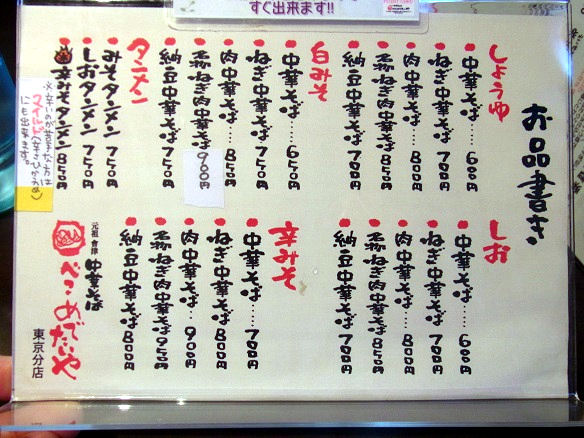 すぐ出来ます!!
お品書き
しょうゆ
中華そば……600円
ねぎ中華そば……700円
肉中華そば……800円
ねぎ肉中華そば…850円
納豆中華そば…700円
白みそ
中華そば……650円
ねぎ中華そば……750円
肉中華そば……850円
ねぎ肉中華そば 900円
納豆中華そば…750円
タンメン
みそタンメン 750円
しおタンメン 750円
辛みそタンメン 850円
※辛いのが苦手な方は
マイルド(辛さひかえめ)
にも出来ます。
しお
中華そば……600円
ねぎ中華そば…700円
肉中華そば……800円
ねぎ肉中華そば…850円
納豆中華そば…700円
辛みそ
中華そば……700円
ねぎ中華そば…800円
肉中華そば…900円
ねぎ肉中華そば…950円
納豆中華そば…800円
元祖 会津 中華そば
べこめでたいや
東京分店